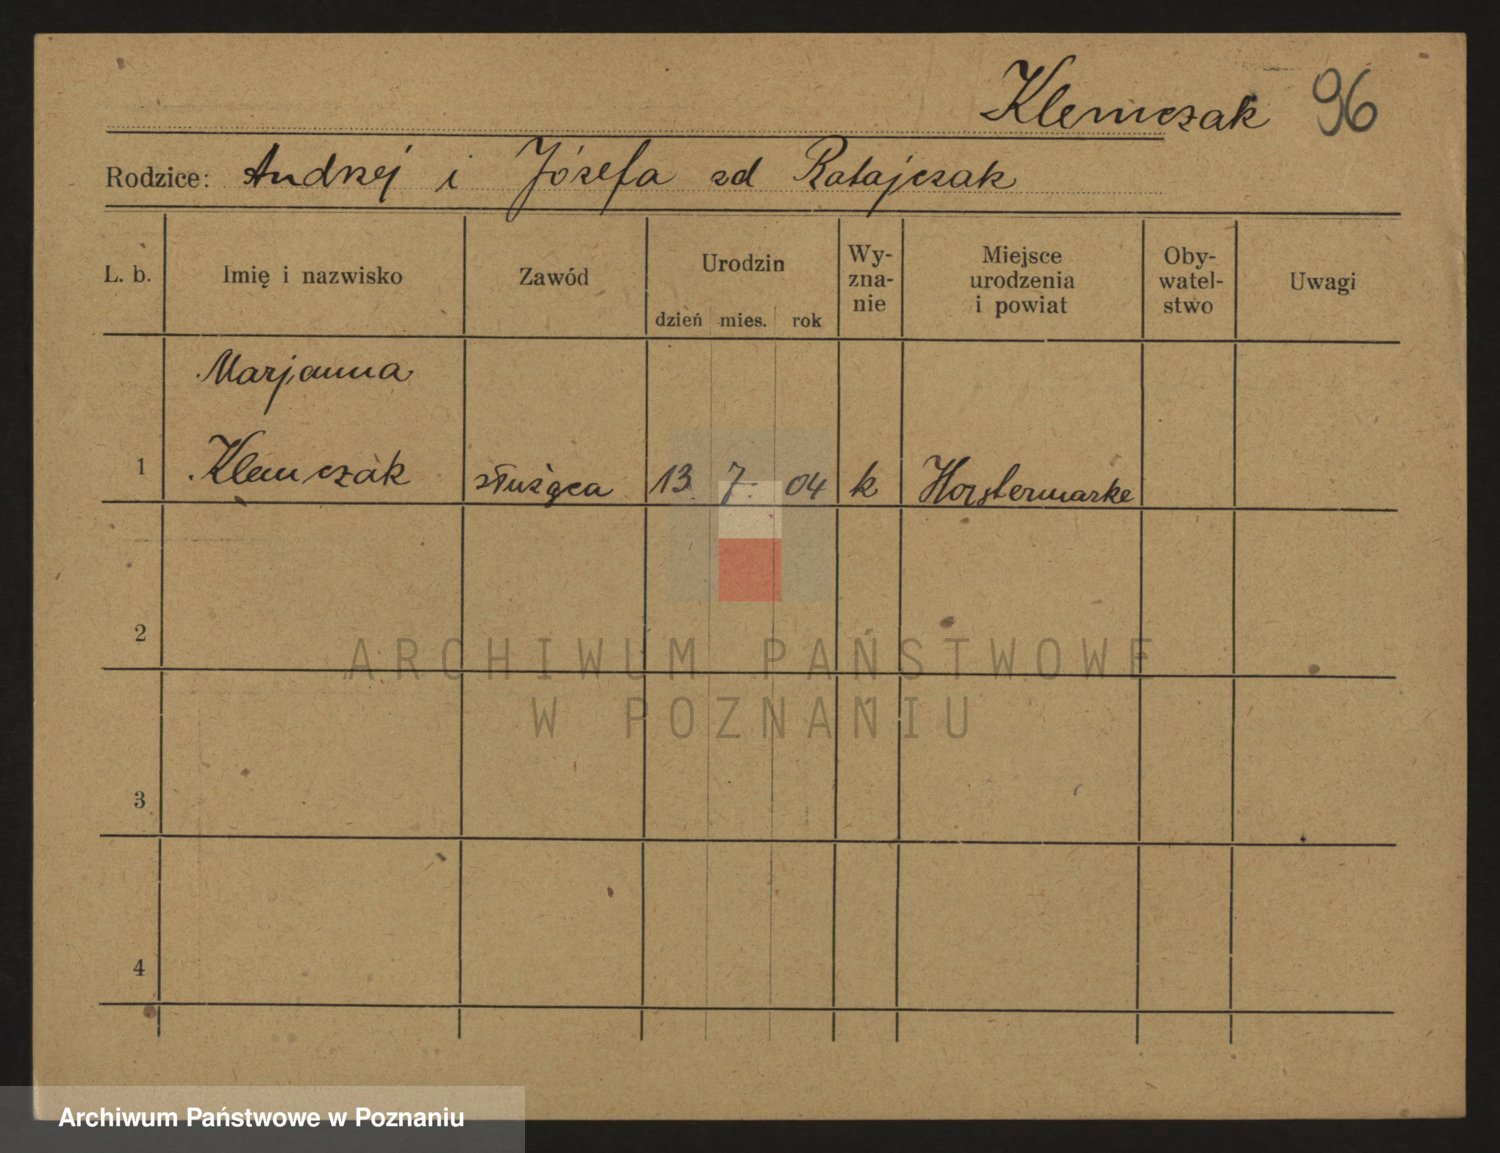 Klemczak 96
Rodzice: Andrzej i Józefa zd Ratajczak
L. b. Imię i nazwisko Zawód Urodzin dzień mies. rok Wy-zna-nie Miejsce urodzenia i powiat Oby-watel-stwo Uwagi
Marjanna
1 Klemczak służąca 13. 7. 04 k Horstermarke
2
ARCHIWUM PAŃSTWOWE
W POZNANIU
3
4
Archiwum Państwowe w Poznaniu